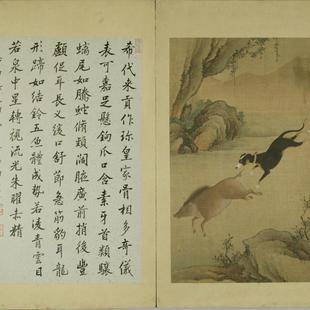 希代来貢作珍皇家骨相多奇儀
表可嘉足懸鉤爪口含素牙首類驤
螭尾如騰蛇脩頸闊腋廣前捎後豐
顱促耳長叉緩口舒節急筋豹耳龍
形蹄如結鈴五魚體成勢若凌青雲目
若泉中星轉視流光朱曜赤精